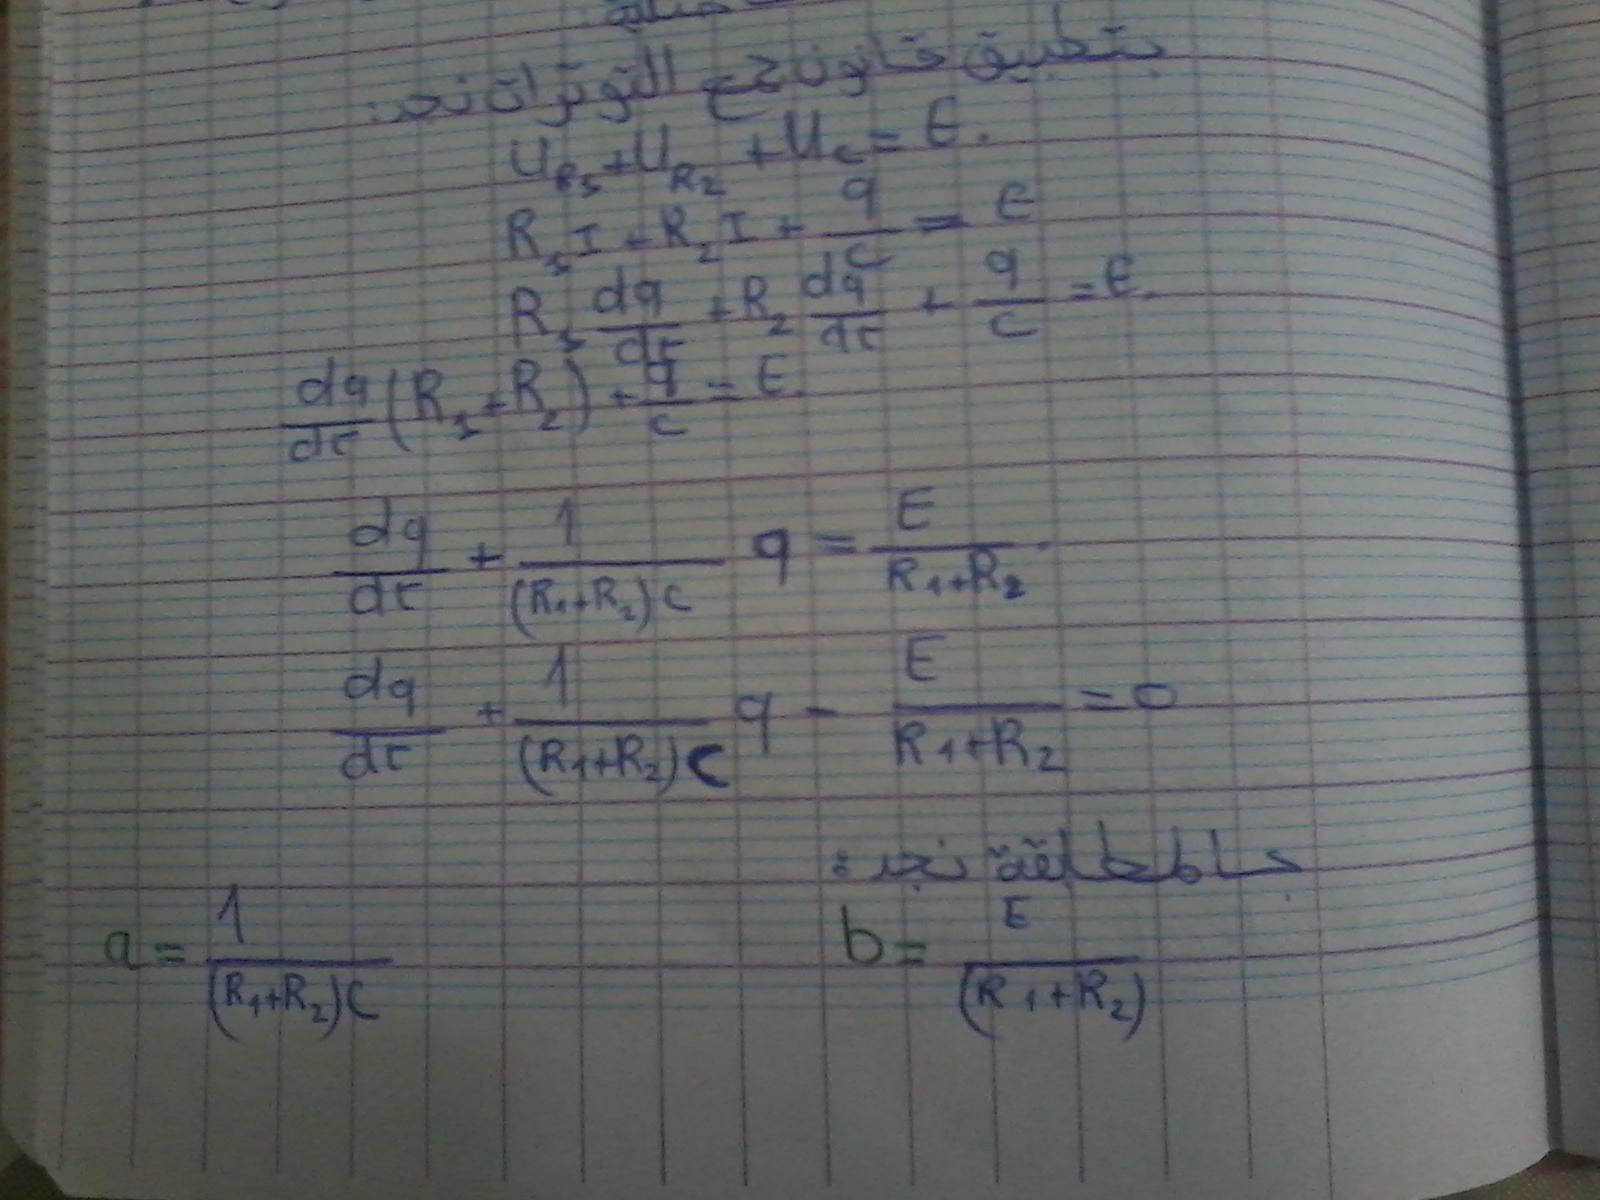 بتطبيق قانون جمع التوترات نجد:
U_{R1} + U_{R2} + U_c = E.
R_1 I + R_2 I + \frac{q}{c} = E
R_1 \frac{dq}{dt} + R_2 \frac{dq}{dt} + \frac{q}{c} = E.
\frac{dq}{dt} (R_1 + R_2) + \frac{q}{c} = E.
\frac{dq}{dt} + \frac{1}{(R_1+R_2)C} q = \frac{E}{R_1+R_2}.
\frac{dq}{dt} + \frac{1}{(R_1+R_2)C} q - \frac{E}{R_1+R_2} = 0
بالمطابقة نجد:
a = \frac{1}{(R_1+R_2)C} b = \frac{E}{(R_1+R_2)}